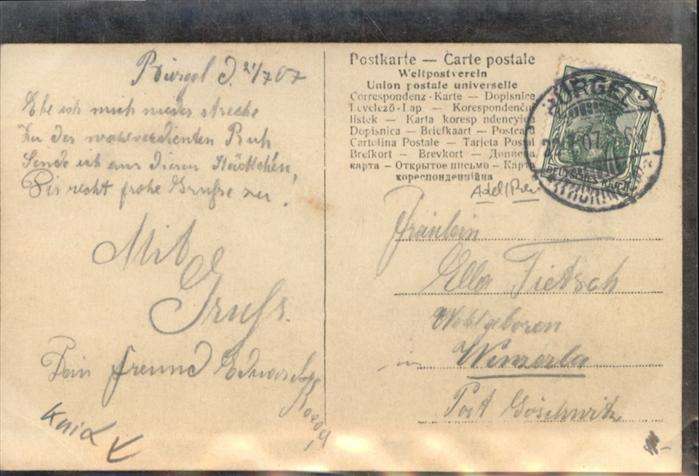 Bürgel d. 21/7 07
Ehe ich mich nieder strecke
Zu der wohlverdienten Ruh
Sende ich aus diesem Städtchen,
Dir recht frohe Grüße zu.
Mit
Gruß.
Dein freund
Postkarte — Carte postale
Weltpostverein
Union postale universelle
Correspondenz-Karte — Dopisnice
Levelező-Lap — Korespondenčn
listek — Karta koresp ndencyjn
Dopisnica — Briefkaart — Postcar
Cartolina Postale — Tarjeta Post
Brefkort — Brevkort — Дописна
карта — Открытое письмо — Карт
кореспонденційна
BÜRGEL
(THÜRINGEN)
Fräulein
Ella Tietsch
Wohlgeboren
Winzerla
Post Göschwitz